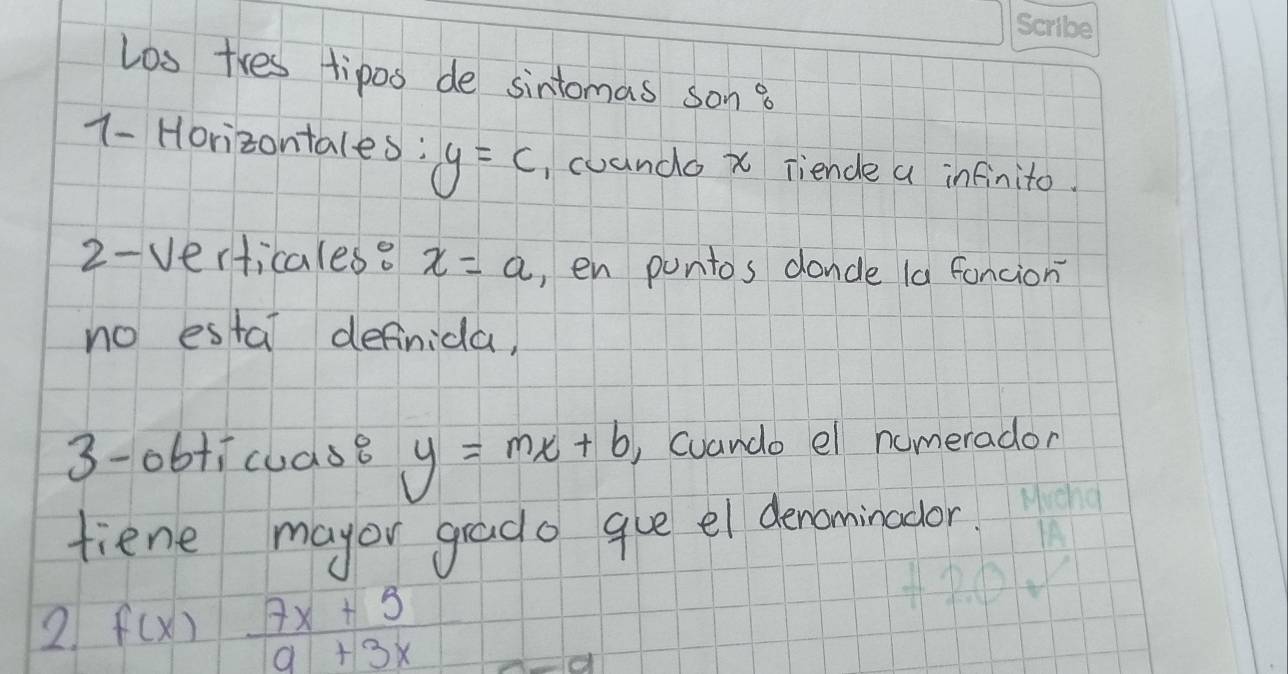 Scribe
Los tres tipos de sintomas son:
1- Horizontales: y = c, cuando x Tiende a infinito.
2-verticales: x = a, en puntos donde la función
no está definida,
3-obticuas: y = mx + b, cuando el numerador
tiene mayor grado que el denominador.
Mucha
IA
+2.0 ✓
2. f(x) 7x + 9
9 + 3x